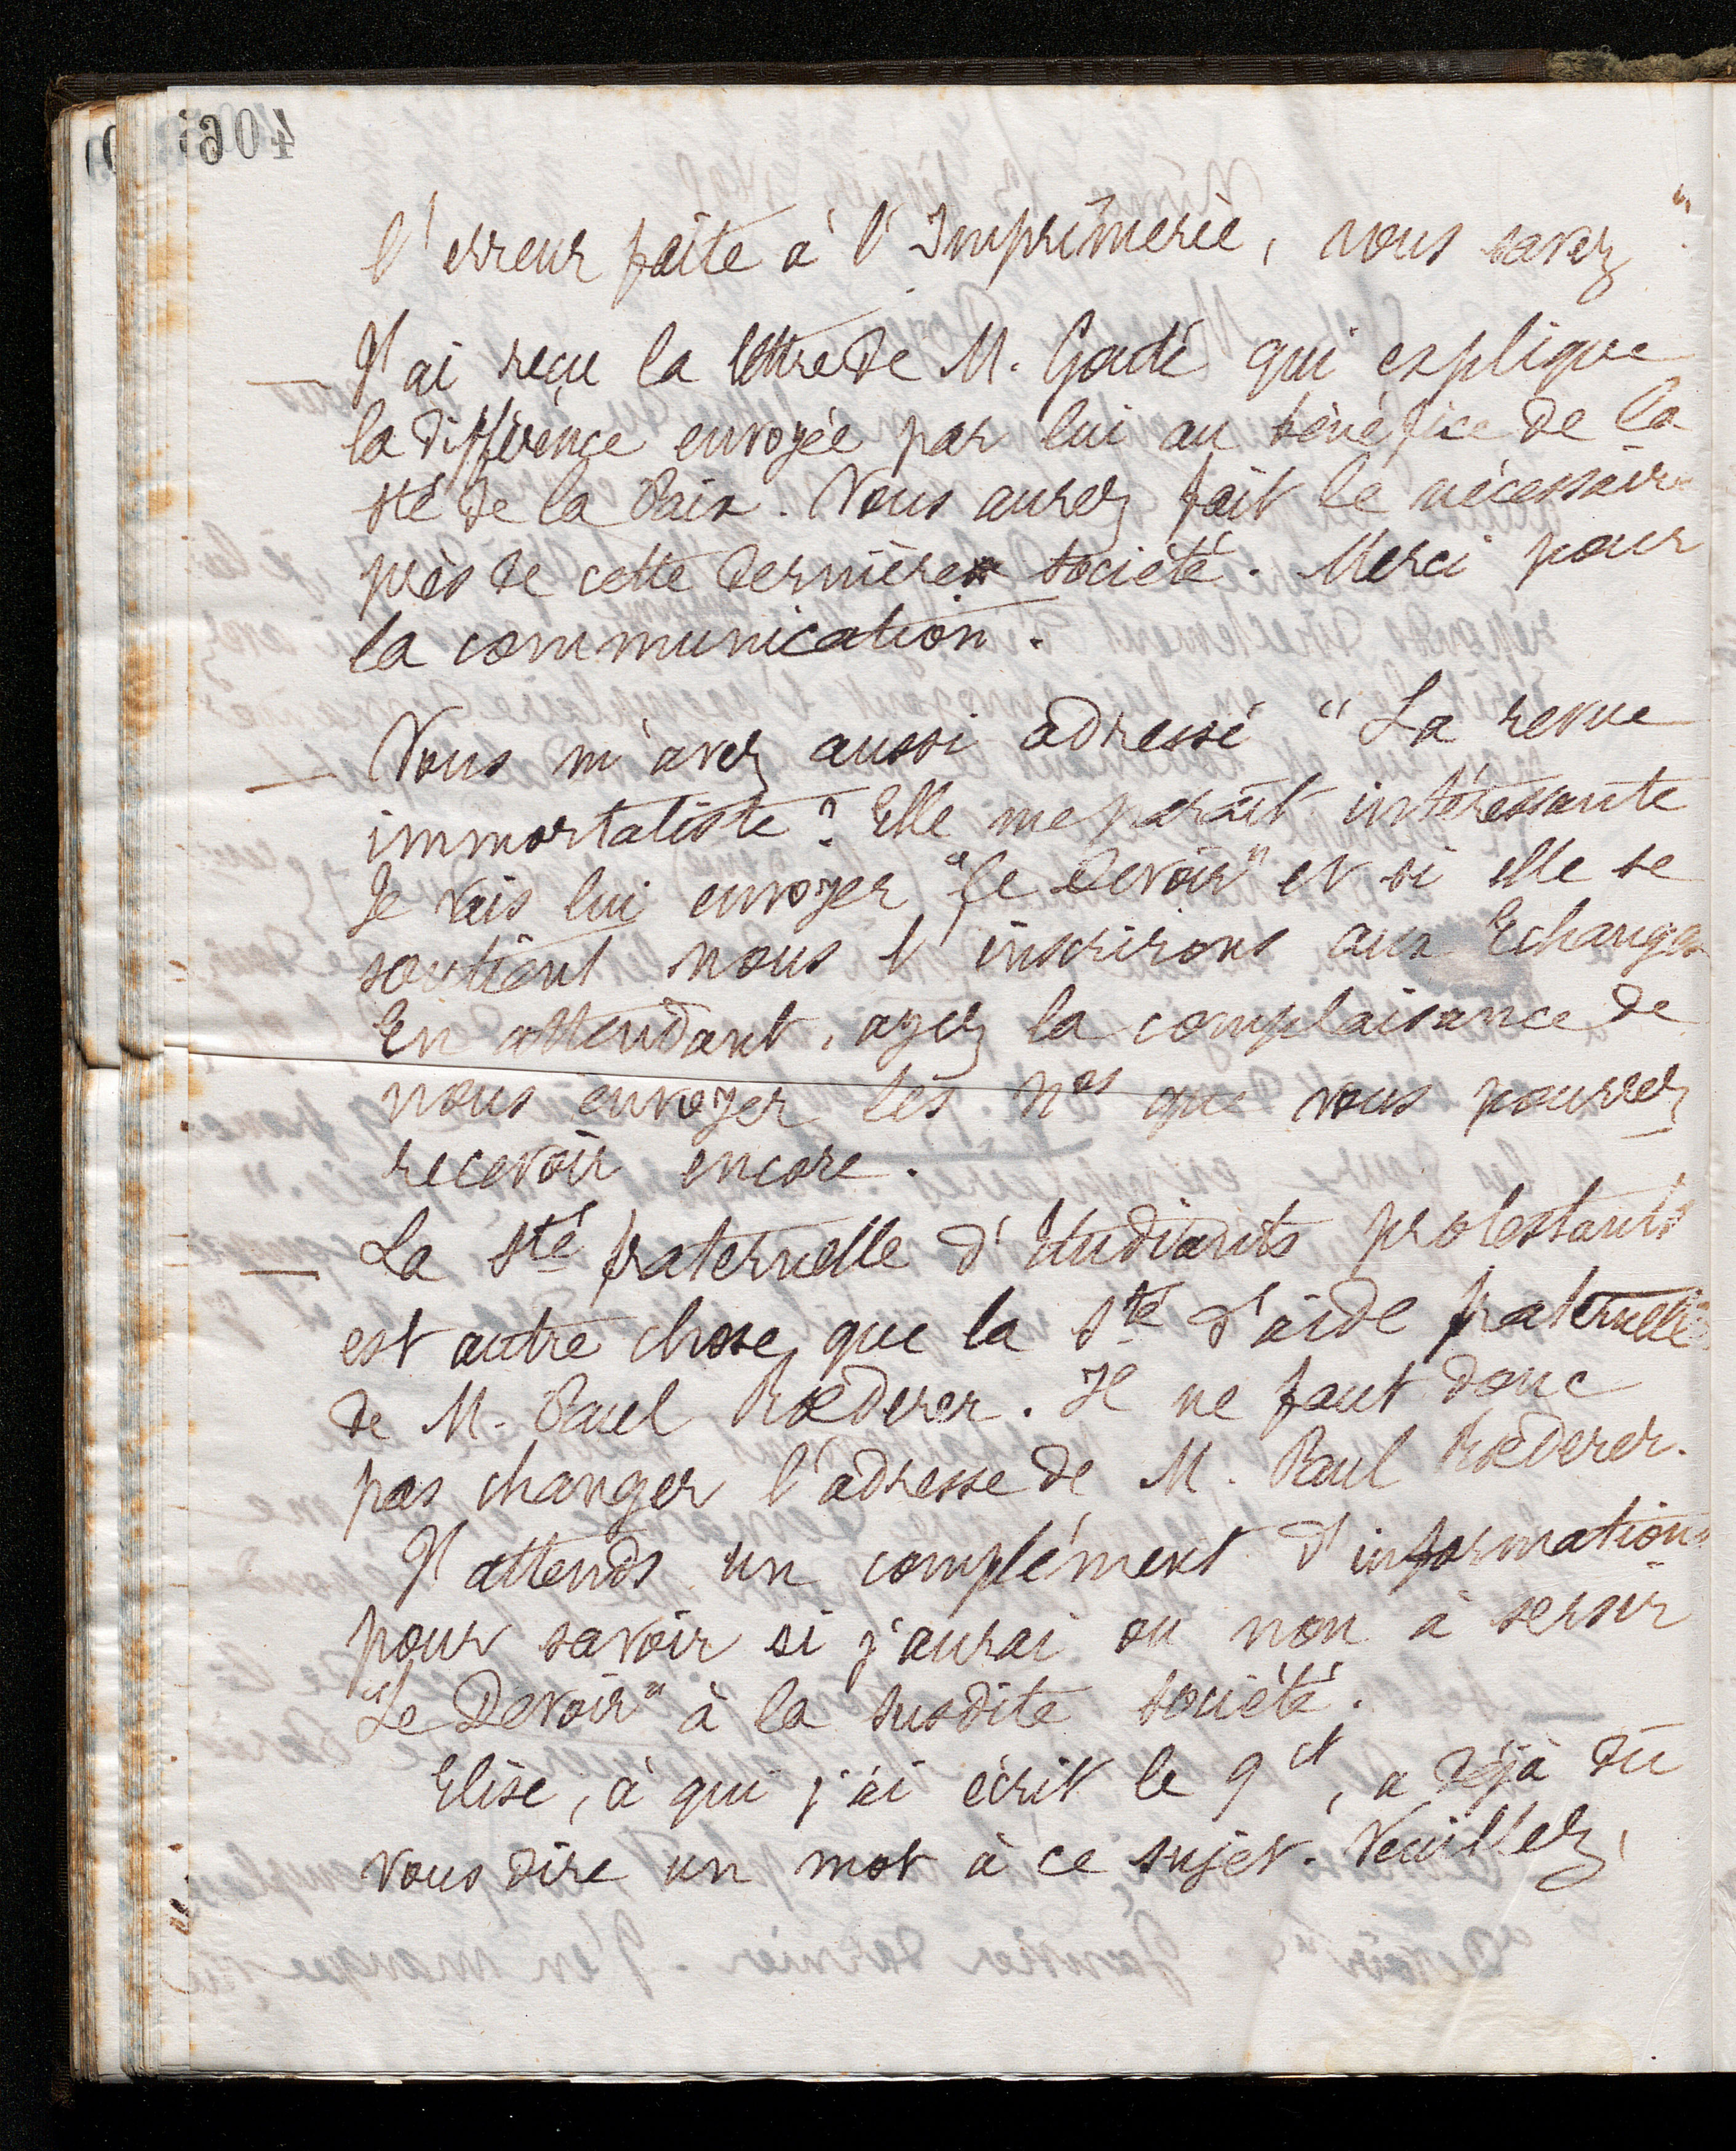 406
l'erreur faite à l'Imprimerie, vous savez
— J'ai reçu la lettre de M. Godé qui explique
la différence envoyée par lui au bénéfice de la
sté de la Paix. Vous aurez fait le nécessaire
près de cette dernière société. Merci pour
la communication.
— Vous m'avez aussi adressé "La revue
immortaliste". Elle me paraît intéressante
Je vais lui envoyer "Le Devoir" et si elle se
soutient nous l'inscrirons aux Echanges
En attendant, ayez la complaisance de
nous envoyer les nos que vous pourrez
recevoir encore.
— La Sté fraternelle d'Etudiants protestants
est autre chose que la Sté d'aide fraternelle
de M. Paul Rœderer. Il ne faut donc
pas changer l'adresse de M. Paul Rœderer.
J'attends un complément d'informations
pour savoir si j'aurai ou non à servir
"Le Devoir" à la susdite société.
Elise, à qui j'ai écrit le 9 ct, a déjà dû
vous dire un mot à ce sujet. Veuillez,